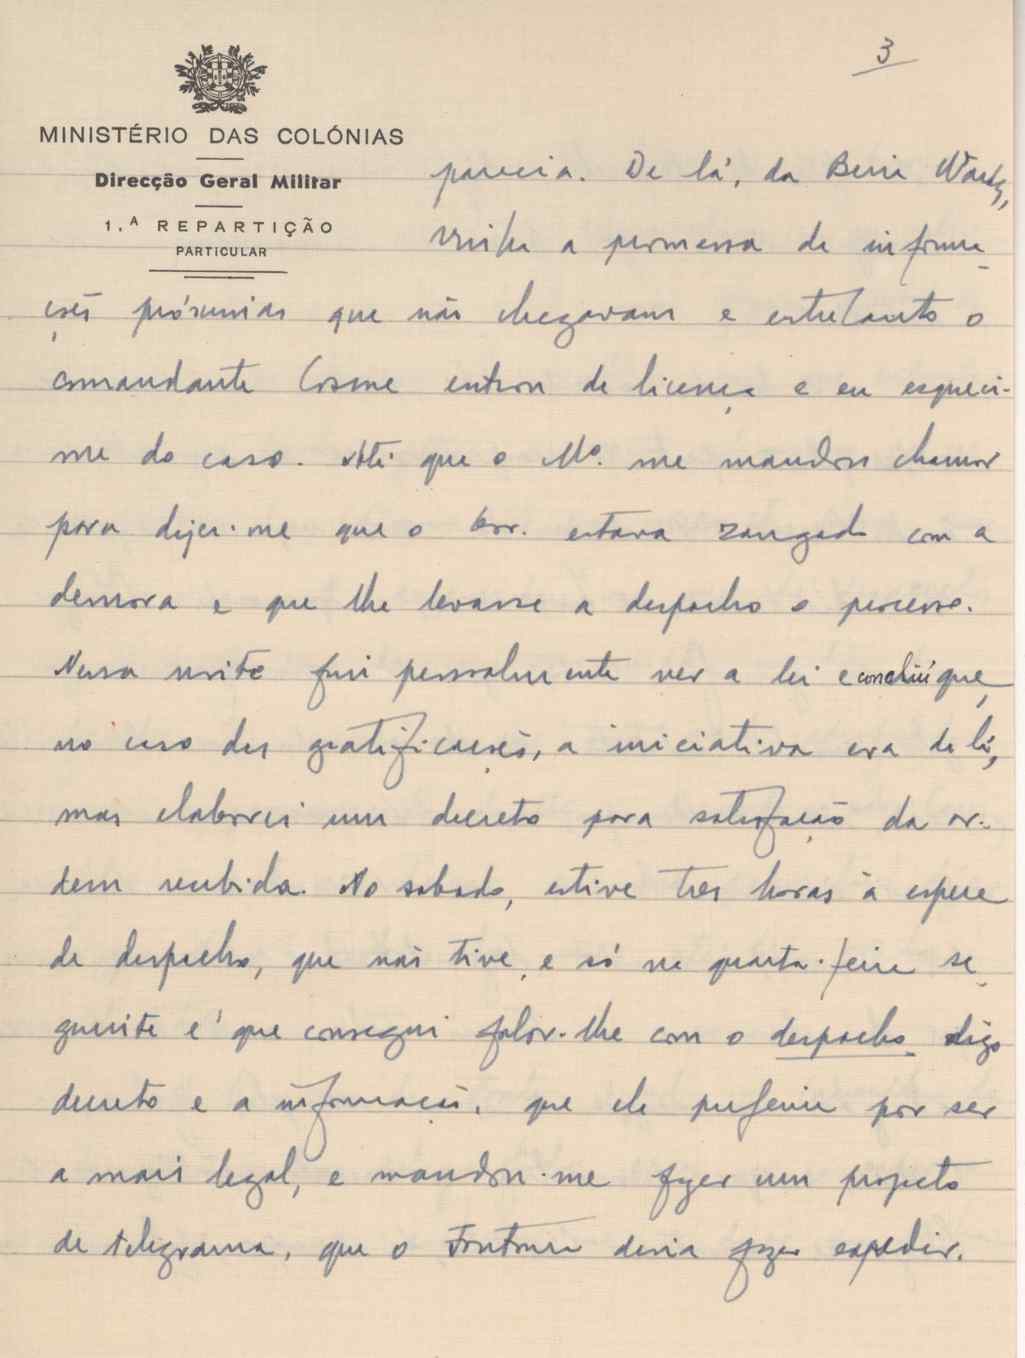 3
MINISTÉRIO DAS COLÓNIAS
Direcção Geral Militar
1.ª REPARTIÇÃO
PARTICULAR
parecia. De lá, da
a promessa de informa-
ções próximas que não chegavam e entretanto o
comandante Cosme entrou de licença e eu esqueci-
me do caso. Até que o Mº. me mandou chamar
para dizer-me que o estava zangado com a
demora e que lhe levasse a despacho o processo.
Nessa noite fui pessoalmente ver a lei e conclui que,
no caso das gratificações, a iniciativa era de lá,
mas elaborei um decreto para satisfação da or-
dem recebida. No sabado, estive tres horas à espera
de despacho, que não tive, e só na quarta-feira se-
guinte é que consegui falar-lhe com o despacho digo
decreto e a informação, que ele preferiu por ser
a mais legal, e mandou-me fazer um projeto
de telegrama, que o devia fazer expedir.